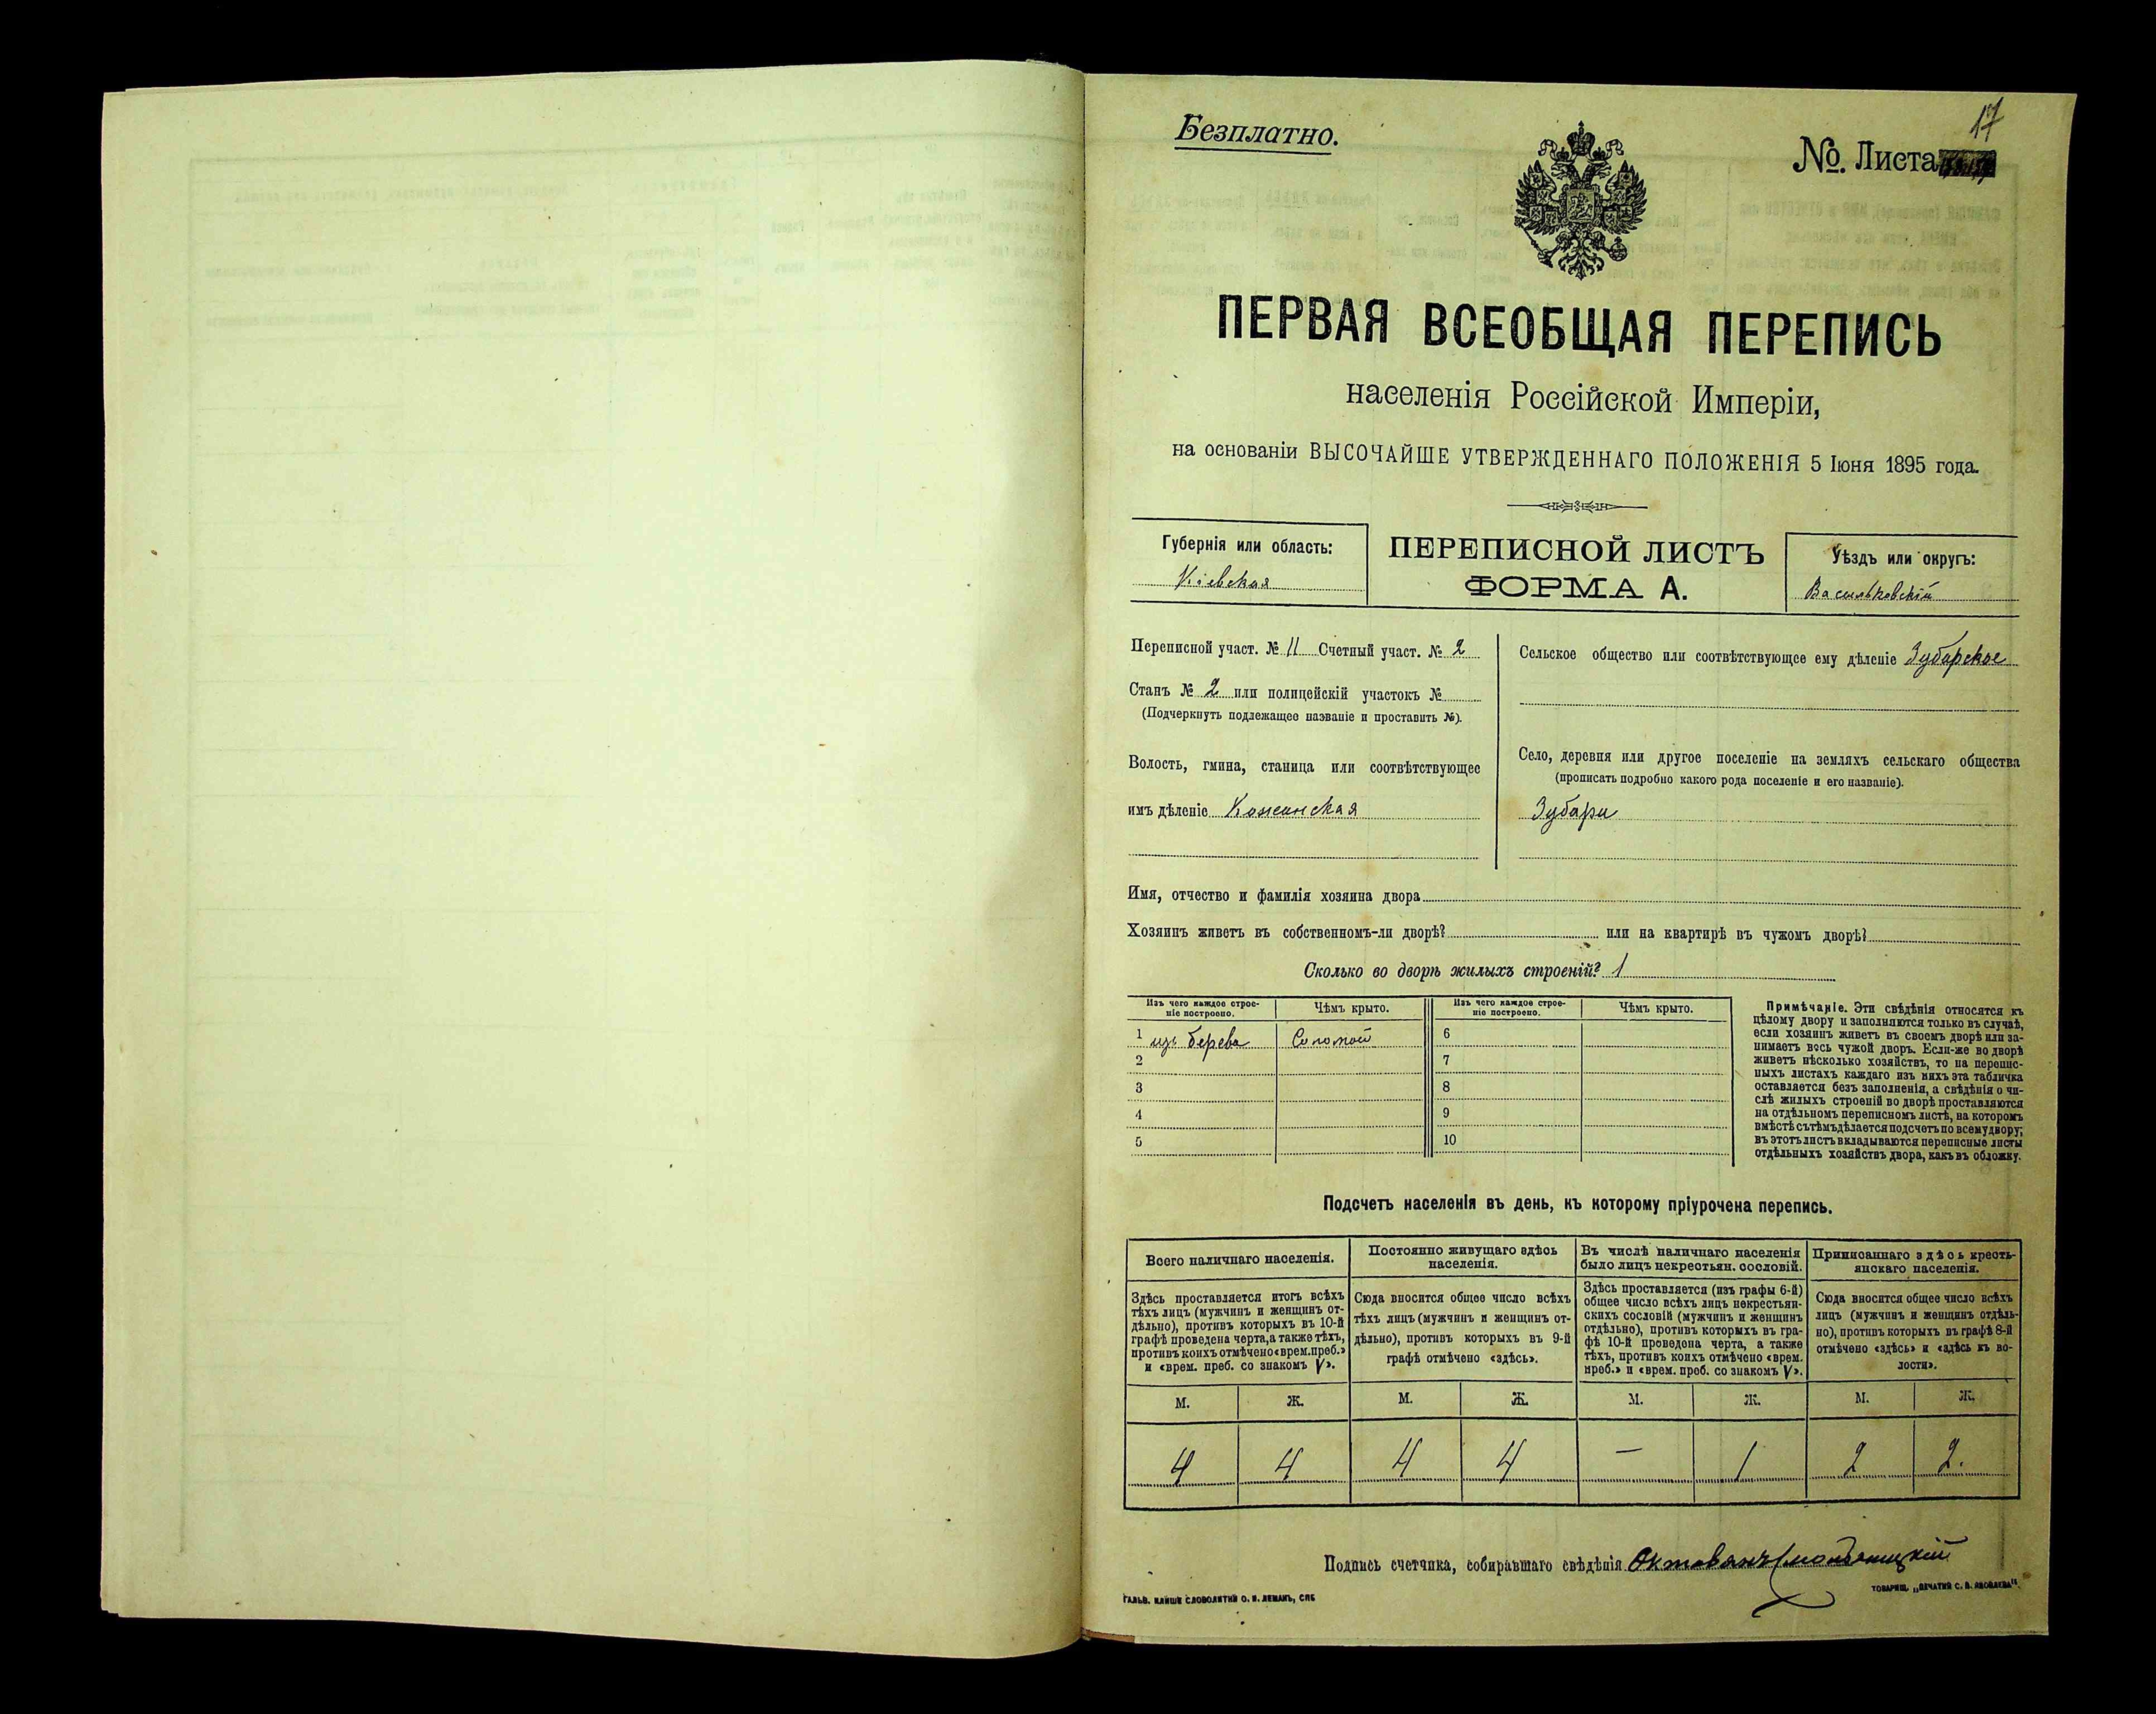 17
Безплатно.
№. Листа
ПЕРВАЯ ВСЕОБЩАЯ ПЕРЕПИСЬ
населенія Россійской Имперіи,
на основаніи ВЫСОЧАЙШЕ УТВЕРЖДЕННАГО ПОЛОЖЕНІЯ 5 Іюня 1895 года.
Губернія или область:
Кіевская
ПЕРЕПИСНОЙ ЛИСТЪ
ФОРМА А.
Уѣздъ или округъ:
Васильковскій
Переписной участ. № 11 Счетный участ. № 2
Станъ № 2 или полицейскій участокъ №
(Подчеркнуть подлежащее названіе и проставить №).
Волость, гмина, станица или соотвѣтствующее
имъ дѣленіе Кожанская
Сельское общество или соотвѣтствующее ему дѣленіе Зубарское
Село, деревня или другое поселеніе на земляхъ сельскаго общества
(прописать подробно какого рода поселеніе и его названіе).
Зубари
Имя, отчество и фамилія хозяина двора
Хозяинъ живетъ въ собственномъ-ли дворѣ? или на квартирѣ въ чужомъ дворѣ?
Сколько во дворѣ жилыхъ строеній? 1
Изъ чего каждое строе-
ніе построено.
Чѣмъ крыто.
Изъ чего каждое строе-
ніе построено.
Чѣмъ крыто.
1 изъ дерева Соломой 6
2 7
3 8
4 9
5 10
Примѣчаніе. Эти свѣдѣнія относятся къ
цѣлому двору и заполняются только въ случаѣ,
если хозяинъ живетъ въ своемъ дворѣ или за-
нимаетъ весь чужой дворъ. Если-же во дворѣ
живетъ нѣсколько хозяйствъ, то на перепис-
ныхъ листахъ каждаго изъ нихъ эта табличка
оставляется безъ заполненія, а свѣдѣнія о чи-
слѣ жилыхъ строеній во дворѣ проставляются
на отдѣльномъ переписномъ листѣ, на которомъ
вмѣстѣ съ тѣмъ дѣлается подсчетъ по всему двору;
въ этотъ листъ вкладываются переписные листы
отдѣльныхъ хозяйствъ двора, какъ въ обложку.
Подсчетъ населенія въ день, къ которому пріурочена перепись.
Всего наличнаго населенія.
Постоянно живущаго здѣсь
населенія.
Въ числѣ наличнаго населенія
было лицъ некрестьян. сословій.
Приписаннаго здѣсь кресть-
янскаго населенія.
Здѣсь проставляется итогъ всѣхъ
тѣхъ лицъ (мужчинъ и женщинъ от-
дѣльно), противъ которыхъ въ 10-й
графѣ проведена черта, а также тѣхъ,
противъ коихъ отмѣчено «врем. преб.»
и «врем. преб. со знакомъ V».
Сюда вносится общее число всѣхъ
тѣхъ лицъ (мужчинъ и женщинъ от-
дѣльно), противъ которыхъ въ 9-й
графѣ отмѣчено «здѣсь».
Здѣсь проставляется (изъ графы 6-й)
общее число всѣхъ лицъ некрестьян-
скихъ сословій (мужчинъ и женщинъ
отдѣльно), противъ которыхъ въ гра-
фѣ 10-й проведена черта, а также
тѣхъ, противъ коихъ отмѣчено «врем.
преб.» и «врем. преб. со знакомъ V».
Сюда вносится общее число всѣхъ
лицъ (мужчинъ и женщинъ отдѣль-
но), противъ которыхъ въ графѣ 8-й
отмѣчено «здѣсь» и «здѣсь къ во-
лости».
М. Ж. М. Ж. М. Ж. М. Ж.
4 4 4 4 — 1 2 2.
Подпись счетчика, собиравшаго свѣдѣнія
ГАЛЬВ. КЛИШЕ СЛОВОЛИТНИ О. И. ЛЕМАНЪ, СПБ
ТОВАРИЩ. „ПЕЧАТНЯ С. П. ЯКОВЛЕВА“.